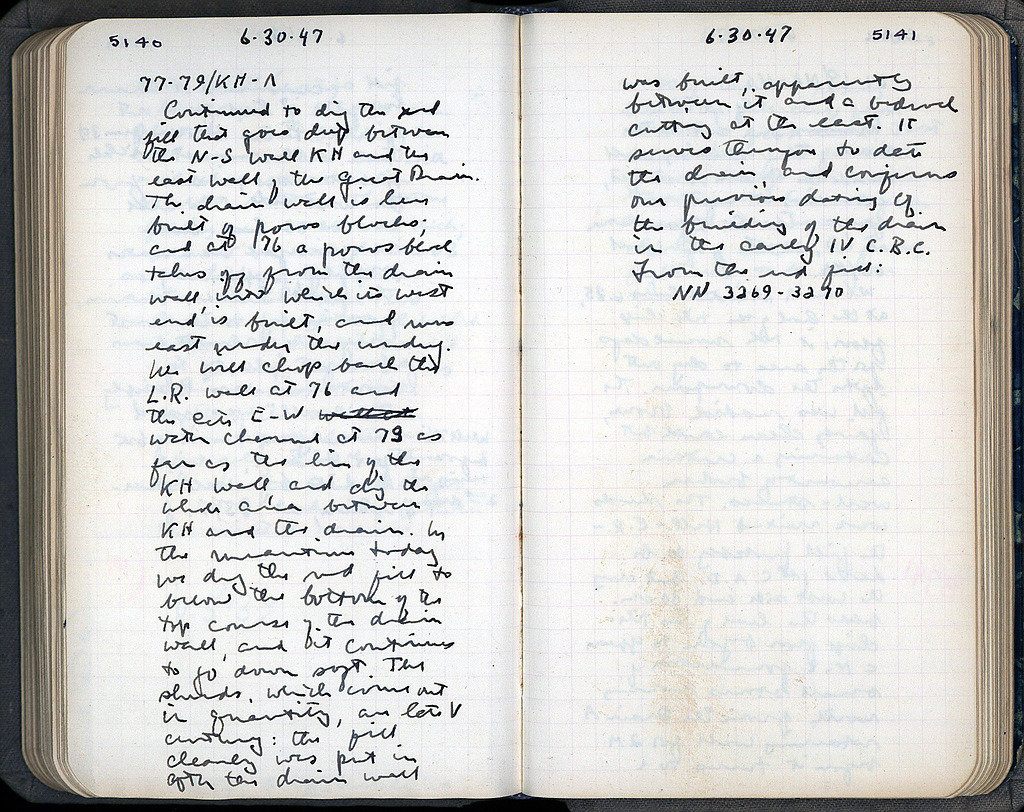 5140 6·30·47
77-79/KH-Λ
Continued to dig the red
fill that goes deep between
the N-S wall KH and the
east wall of the Great Drain.
The drain wall is here
built of poros blocks;
and at 76 a poros block
takes off from the drain
wall, into which its west
end is built, and runs
east under the
We will chop back the
L.R. wall at 76 and
the late E-W
water channel at 79 as
far as the line of the
KH wall and dig the
whole area between
KH and the drain. In
the meantime today
we dug the red fill to
below the bottom of the
top course of the drain
wall, and it continues
to go down soft. The
sherds, which come out
in quantity, are late V
century: the fill
clearly was put in
after the drain wall
6·30·47 5141
was built, apparently
between it and a bedrock
cutting at the east. It
serves therefore to date
the drain, and confirms
our previous dating of
the building of the drain
in the early IV C.B.C.
From the red fill:
NN 3269-3270